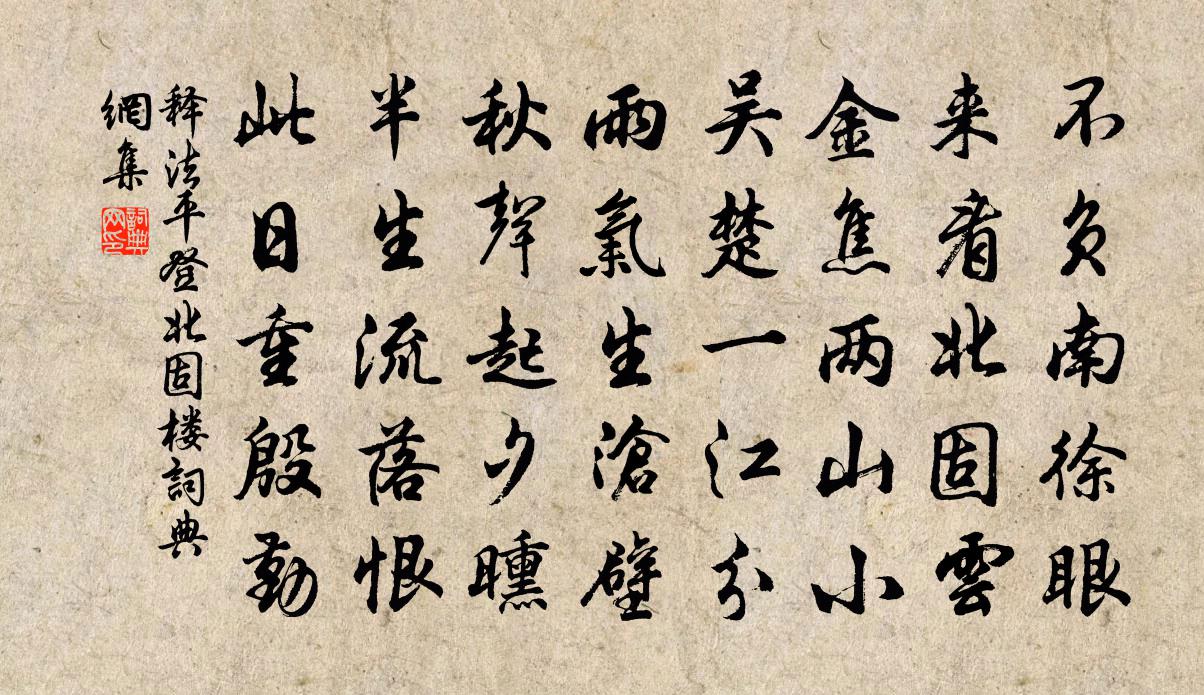 不负南徐眼
来看北固雲
金焦两山小
吴楚一江分
雨氣生滄壁
秋聲起夕曛
半生流落恨
此日重殷勤
释法平登北固楼詞典
網集
詞典
网印